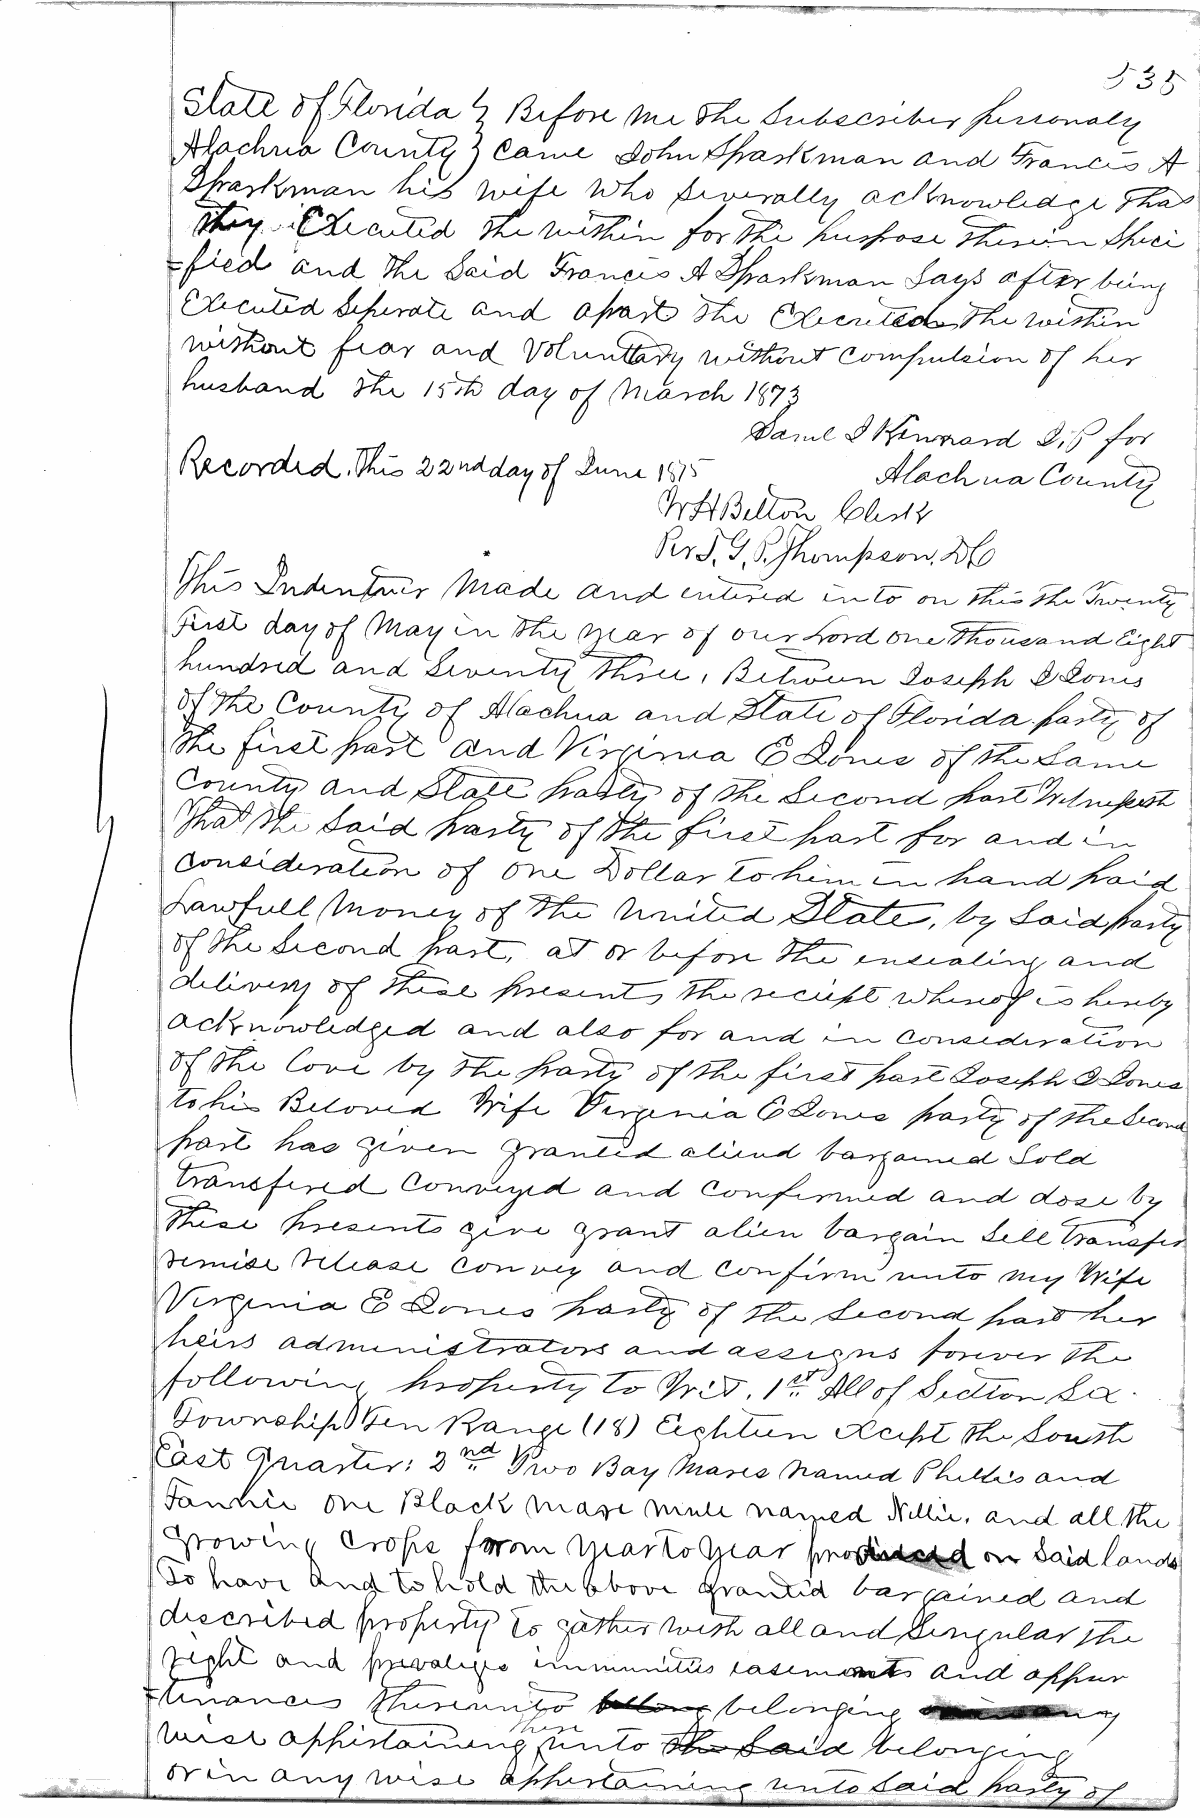 535
State of Florida } Before me the Subscriber personaly
Alachua County } came John Sparkman and Francis A
Sparkman his wife who Severally acknowledge that
they Executed the within for the purpose therein Speci
=fied and the Said Francis A Sparkman Says after being
Executed Seperate and apart the Executed the within
without fear and Voluntary without compulsion of her
husband the 15th day of March 1873
Saml J Kennard J.P for
Recorded. This 22nd day of June 1875
Alachua County
W H Belton Clerk
Per J. G. P. Thompson, DC
This Indentuer Made and entired into on this the Twenty
First day of May in the year of our Lord one thousand Eight
hundred and Seventy three, Between Joseph J Jones
of the County of Alachua and State of Florida party of
the first part and Virginia E Jones of the Same
County and State party of the Second part Witnesseth
That the Said party of the first part for and in
consideration of one Dollar to him in hand paid
Lawfull Money of the United State, by Said party
of the Second part, at or before the ensealing and
delivery of these presents the reciept whereof is hereby
acknowledged and also for and in consideration
of the love by the party of the first part Joseph J Jones
to his Beloved Wife Virginia E Jones party of the Second
part has given granted aliend bargained Sold
transfered Conveyed and Confirmed and dose by
these presents give grant alien bargain Sell transfer
remise release convey and confirm unto my Wife
Virginia E Jones party of the Second part her
heirs administrators and assigns forever the
following property to Wit. 1st All of Section Six
Township Ten Range (18) Eighteen except the South
East Quarter: 2nd Two Bay Mares named Phillis and
Fannie one Black mare mule named Nillie. and all the
growing Crops from year to year produced on Said lands
To have and to hold the above granted bargained and
described property to gather with all and Singular the
right and prevaliges immunities easements and appur
=tenances thereunto belong belonging any
wise appertaining there unto the Said belonging
or in any wise appertaining unto Said party of